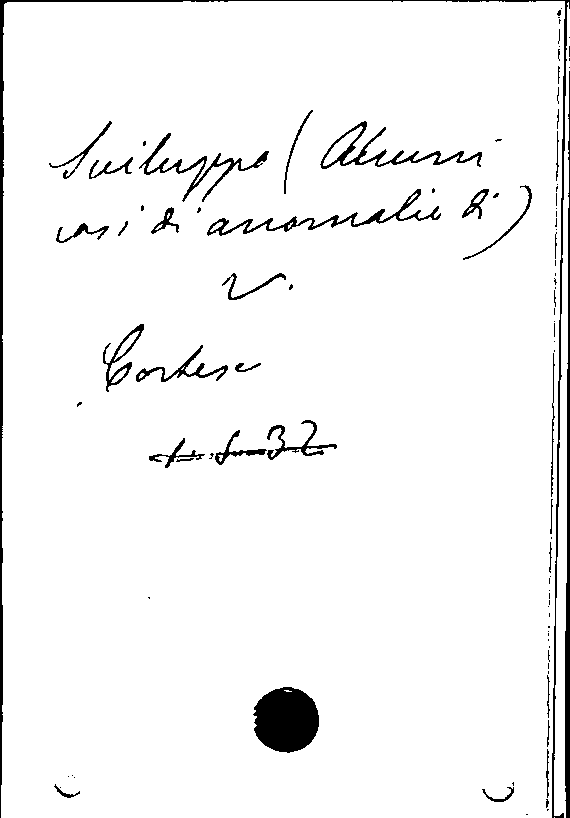 Sviluppo (Alcuni
casi di anomalie di)
V.
Cortese